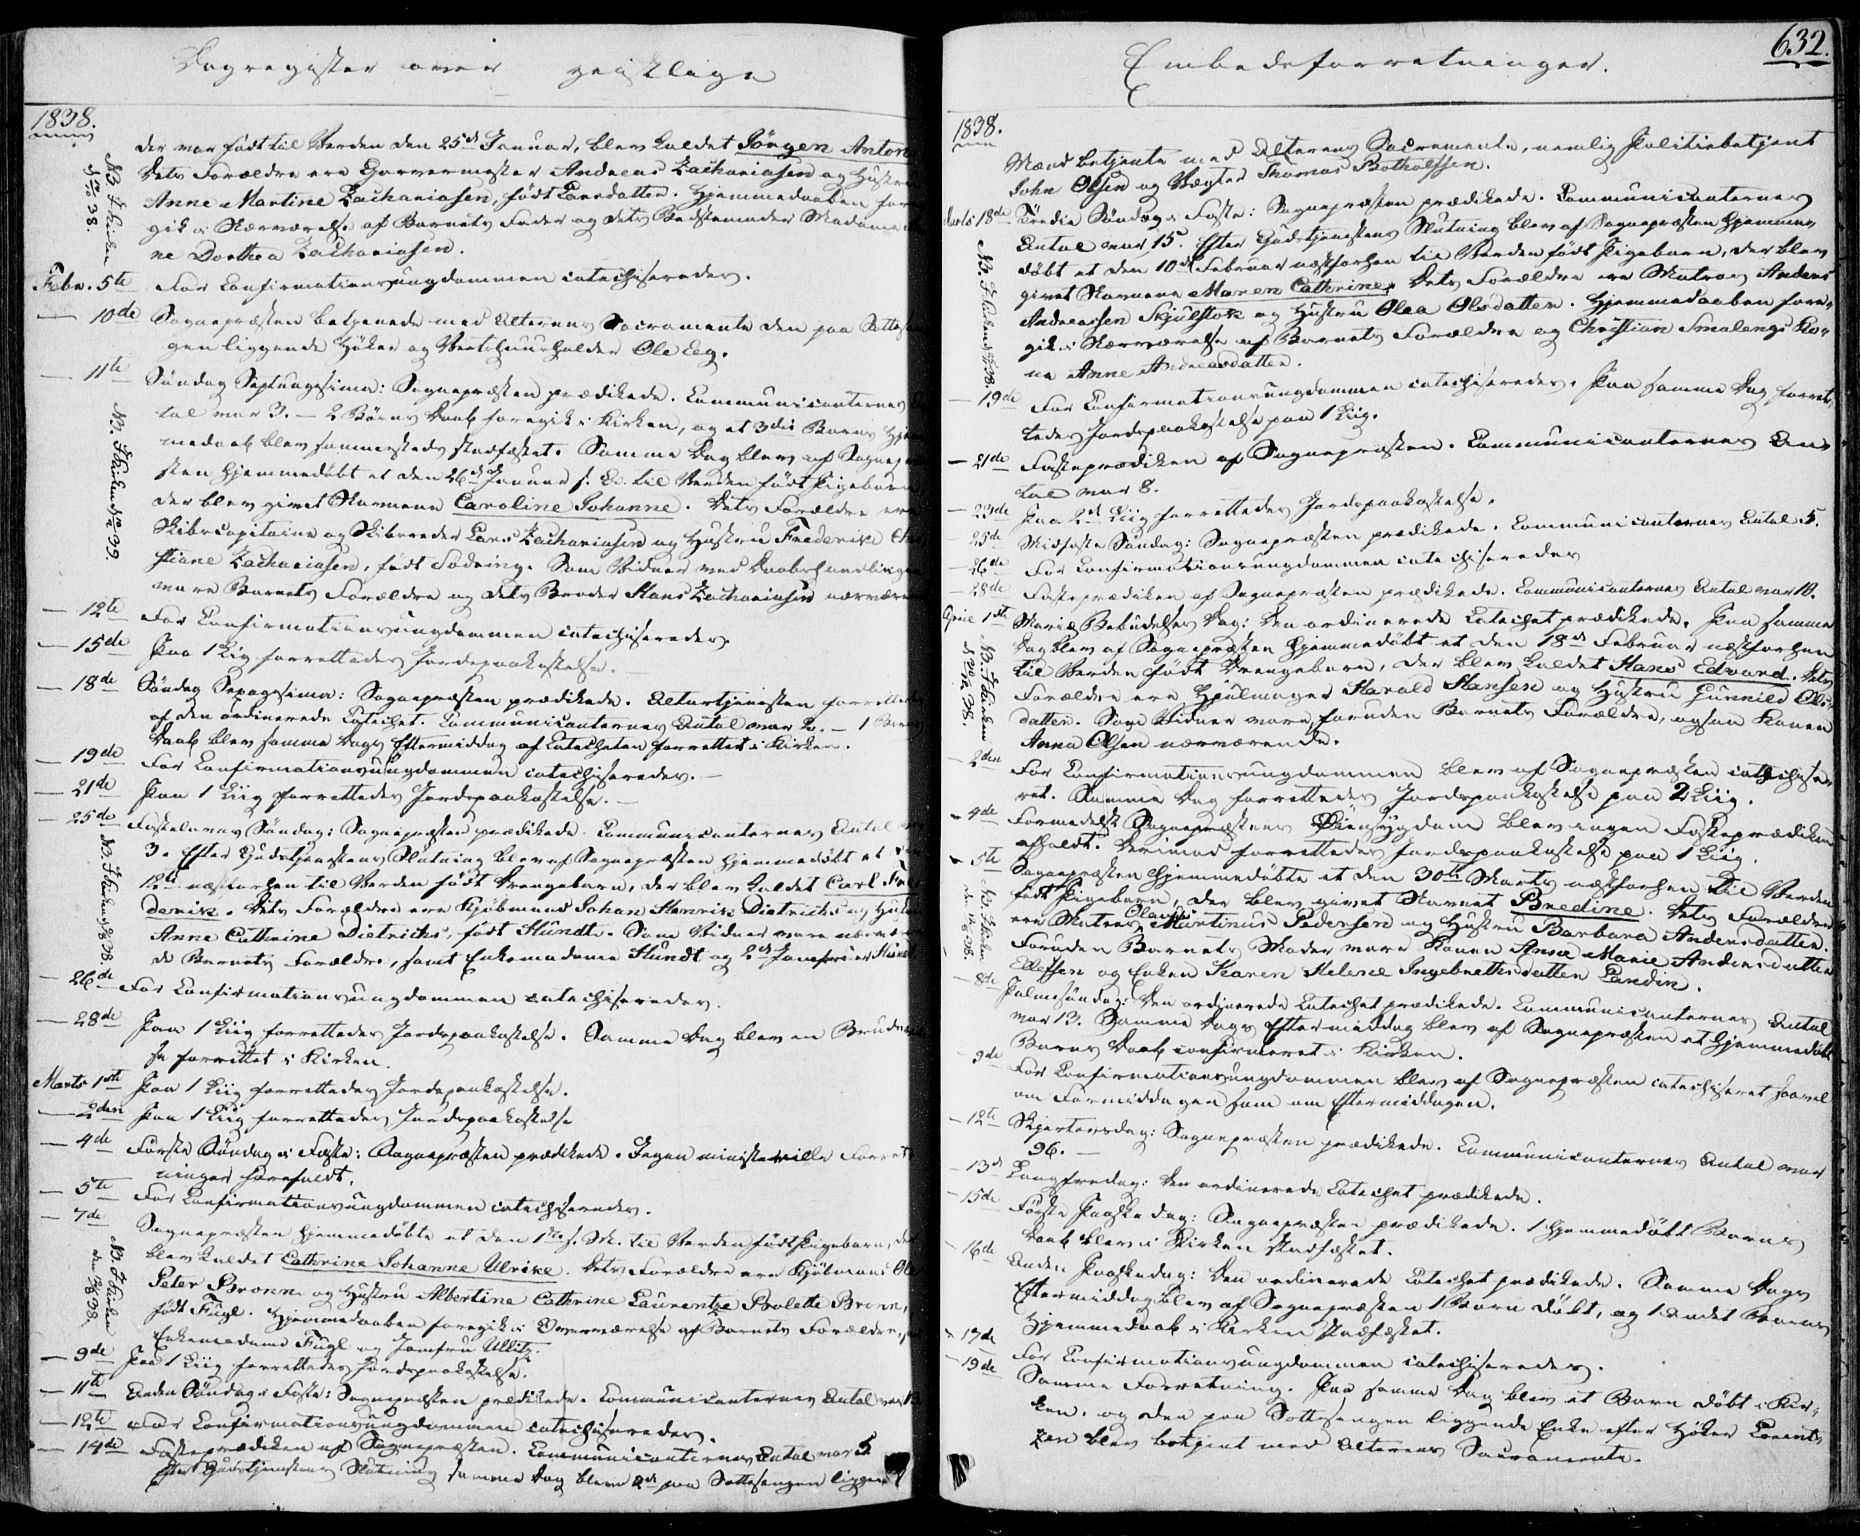 Dagregister over geistlige
1838.
der var født til Verden den 25de Januar, blev kaldet Jörgen Anton
Dets Forældre ere Garvermester Andreas Zachariasen og Hustru
Anne Martine Zachariasen, født Larsdatter. Hjemmedaaben fore
gik i Nærværelse af Barnets Fader og dets Bedstemoder Madame
ne Dorthea Zachariasen.
Febr. 5te For Confirmationsungdommen catechiseredes.
— 10de Sognepræsten betjenede med Alterens Sacramente den paa Sottesen
gen liggende Høker og Vertshuusholder Ole Eeg.
— 11te Søndag Septuagesima: Sognepræsten prædikede. Communicanternes
tal var 3. — 2 Børns Daab foregik i Kirken, og et 3die Barns Hjem
medaab blev sammesteds stadfæstet. Samme Dag blev af Sognepræ
sten hjemmedøbt et den 26de Januar f. A. til Verden født Pigebarn
der blev givet Navnene Caroline Johanne. Dets Forældre ere
Skibscapitaine og Skibsreder Lars Zachariasen og Hustru Frederike Chri
stiane Zachariasen, født Södring. Som Vidner ved Daabshandlingen
vare Barnets Forældre og dets Broder Hans Zachariasen nærværende
— 12te For Confirmationsungdommen catechiseredes.
— 15de Paa 1 Liig forrettedes Jordspaakastelse.
— 18de Søndag Sexagesima: Sognepræsten prædikede. Altertjenesten forrettedes
af den ordinerede Catechet. Communicanternes Antal var 2. — 1 Barns
Daab blev samme Dags Eftermiddag af Catecheten forrettet i Kirken.
— 19de For Confirmationsungdommen catechiseredes. —
— 21de Paa 1 Liig forrettedes Jordspaakastelse. —
— 25de Fastelavns Søndag: Sognepræsten prædikede. Communicanternes Antal var
3. Efter Gudstjenestens Slutning blev af Sognepræsten hjemmedøbt et den
12te næstforhen til Verden født Drengebarn, der blev kaldet Carl Fre
derik. Dets Forældre ere Kjøbmand Johan Henrik Dietrichs og Hustru
Anne Cathrine Dietrichs, født Hundt. Som Vidner vare nærværen
de Barnets Forældre, samt Enkemadame Hundt og 2de Jomfruer Hundt
— 26de For Confirmationsungdommen catechiseredes.
— 28de Paa 1 Liig forrettedes Jordspaakastelse. Samme Dag blev en Brudevi
se forrettet i Kirken.
Marts 1ste Paa 1 Liig forrettedes Jordspaakastelse.
— 2den Paa 1 Liig forrettedes Jordspaakastelse
— 4de Første Søndag i Faste: Sognepræsten prædikede. Ingen ministerielle Forret
ninger forefaldt.
— 5te For Confirmationsungdommen catechiseredes.
— 7de Sognepræsten hjemmedøbte et den 1ste f. M. til Verden født Pigebarn, der
blev kaldet Cathrine Johanne Ulrike. Dets Forældre ere Kjøbmand Ole
Peter Bronn og Hustru Albertine Cathrine Laurentze Bolette Bronn,
født Fugl. Hjemmedaaben foregik i Overværelse af Barnets Forældre,
Enkemadame Fugl og Jomfru Ullitz.
— 9de Paa 1 Liig forrettedes Jordspaakastelse.
— 11te Anden Søndag i Faste: Sognepræsten prædikede. Communicanternes Antal var 13
— 12te For Confirmationsungdommen catechiseredes.
— 14de Fasteprædiken af Sognepræsten. Communicanternes Antal var 5.
Efter Gudstjenestens Slutning samme Dag bleve 2de paa Sottesengen liggen
NB. I Kirken
NB. I Kirken
NB. I Kirken
NB. I Kirken
Embedsforretninger.
632.
1838.
Mænd betjente med Alterens Sacramente, nemlig Politiebetjent
John Olsen og Vægter Thomas Botholfsen.
Marts 18de Tredie Søndag i Faste: Sognepræsten prædikede. Communicanternes
Antal var 15. Efter Gudstjenestens Slutning blev af Sognepræsten hjemme
døbt et den 10de Februar næstforhen til Verden født Pigebarn, der blev
givet Navnene Maren Cathrine. Dets Forældre ere Matros Anders
Andreassen Skjulstok og Hustru Olea Olsdatter. Hjemmedaaben fore
gik i Nærværelse af Barnets Forældre og Christian Smalangs Ko
ne Anne Andreasdatter.
— 19de For Confirmationsungdommen catechiseredes. Paa samme Dag forret
tedes Jordspaakastelse paa 1 Liig.
— 21de Fasteprædiken af Sognepræsten. Communicanternes An
tal var 8.
— 23de Paa 2de Liig forrettedes Jordspaakastelse.
— 25de Midfaste Søndag: Sognepræsten prædikede. Communicanternes Antal 5.
— 26de For Confirmationsungdommen catechiseredes
— 28de Fasteprædiken af Sognepræsten prædikede. Communicanternes Antal var 10.
April 1ste Mariæ Bebudelses Dag: Den ordinerede Catechet prædikede. Paa samme
Dag blev af Sognepræsten hjemmedøbt et den 18de Februar næstforhen
til Verden født Drengebarn, der blev kaldet Hans Edvard. Dets
Forældre ere Hjulmager Harald Hansen og Hustru Gunnild Ols
datter. Som Vidner vare, foruden Barnets Forældre, ogsaa Konen
Anna Olsen nærværende.
— 2den For Confirmationsungdommen blev af Sognepræsten catechise
ret. Samme Dag forrettedes Jordspaakastelse paa 2 Liig.
— 4de Formedelst Sognepræstens Øiensygdom blev ingen Fasteprædiken
afholdt. Derimod forrettedes Jordspaakastelse paa 1 Liig.
— 5te Sognepræsten hjemmedøbte et den 30te Marts næstforhen til Verden
født Pigebarn, der blev givet Navnet Bredine. Dets Forældre
ere Matros Martinus Pedersen og Hustru Barbara Andersdatter.
Foruden Barnets Moder vare Konen Anne Marie Andersdatter
Ellefsen og Enken Karen Helene Ingebrethsdatter Landin.
— 8de Palmesøndag: Den ordinerede Catechet prædikede. Communicanternes Antal
var 13. Samme Dags Eftermiddag blev af Sognepræsten et hjemmedøbt
Barns Daab confirmeret i Kirken.
— 9de For Confirmationsungdommen blev af Sognepræsten catechiseret saavel
om Formiddagen som om Eftermiddagen.
— 12te Skjertorsdag: Sognepræsten prædikede. Communicanternes Antal var
96. —
— 13de Langfredag: Den ordinerede Catechet prædikede.
— 15de Første Paaskedag: Sognepræsten prædikede. 1 hjemmedøbt Barns
Daab blev i Kirken stadfæstet.
— 16de Anden Paaskedag: Den ordinerede Catechet prædikede. Samme Dags
Eftermiddag blev af Sognepræsten 1 Barn døbt, og 1 andet Barns
Hjemmedaab i Kirken stadfæstet.
— 17de For Confirmationsungdommen catechiseredes.
— 19de Samme Forretning. Paa samme Dag blev et Barn døbt i Kir
ken. og den paa Sottesengen liggende Enke efter Høker Lorent
zen blev betjent med Alterens Sacramente.
NB. I Kirken
NB. I Kirken
NB. I Kirken